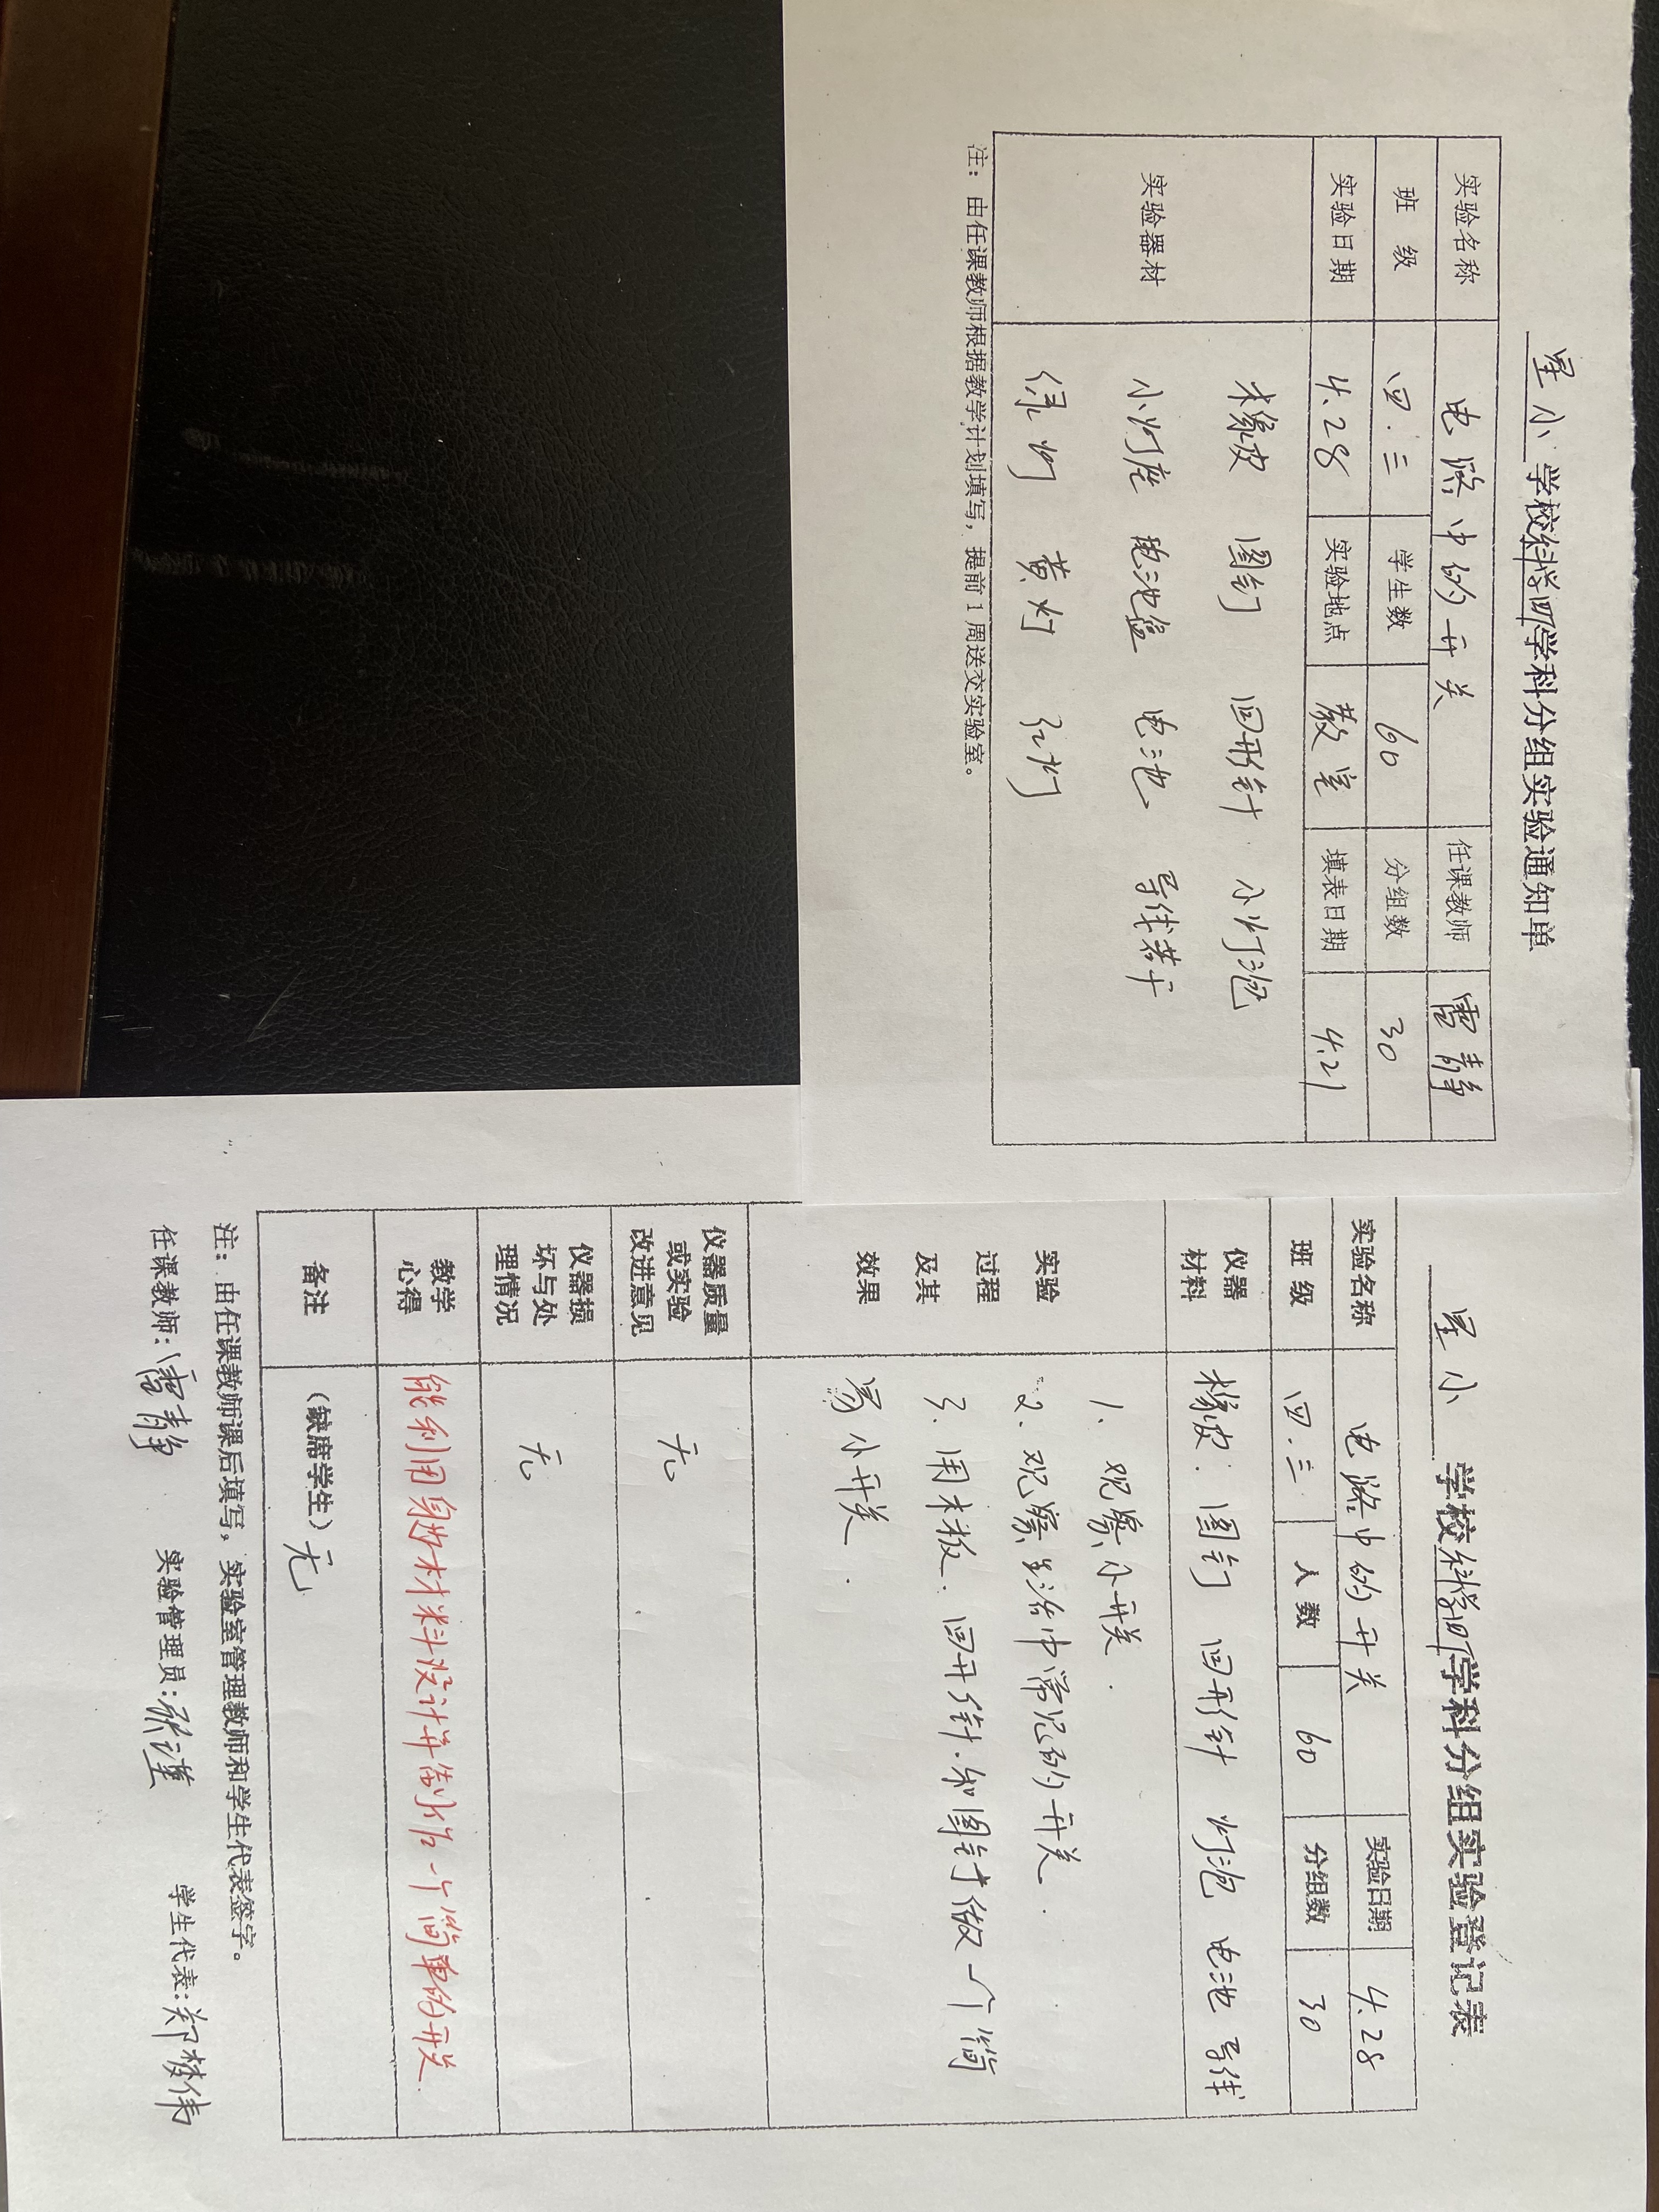 星小 学校科学四学科分组实验通知单
实验名称 电路中的开关 任课教师 雷静
班 级 四.三 学生数 60 分组数 30
实验日期 4.28 实验地点 教室 填表日期 4.21
实验器材 橡皮 图钉 回形针 小灯泡
小灯座 电池盒 电池 导线若干
绿灯 黄灯 红灯
注：由任课教师根据教学计划填写，提前1周送交实验室。
星小 学校科学四学科分组实验登记表
实验名称 电路中的开关 实验日期 4.28
班 级 四.三 人 数 60 分组数 30
仪器材料 橡皮. 图钉 回形针 灯泡 电池 导线
实验过程及其效果 1. 观察小开关.
2. 观察生活中常见的开关.
3. 用木板. 回形针.和图钉做一个简
易小开关.
仪器质量或实验改进意见 无
仪器损坏与处理情况 无
教学心得 能利用身边材料设计并制作一个简单的开关.
备注 （缺席学生）无
注：由任课教师课后填写，实验室管理教师和学生代表签字。
任课教师:雷静 实验管理员: 学生代表:郑梦伟